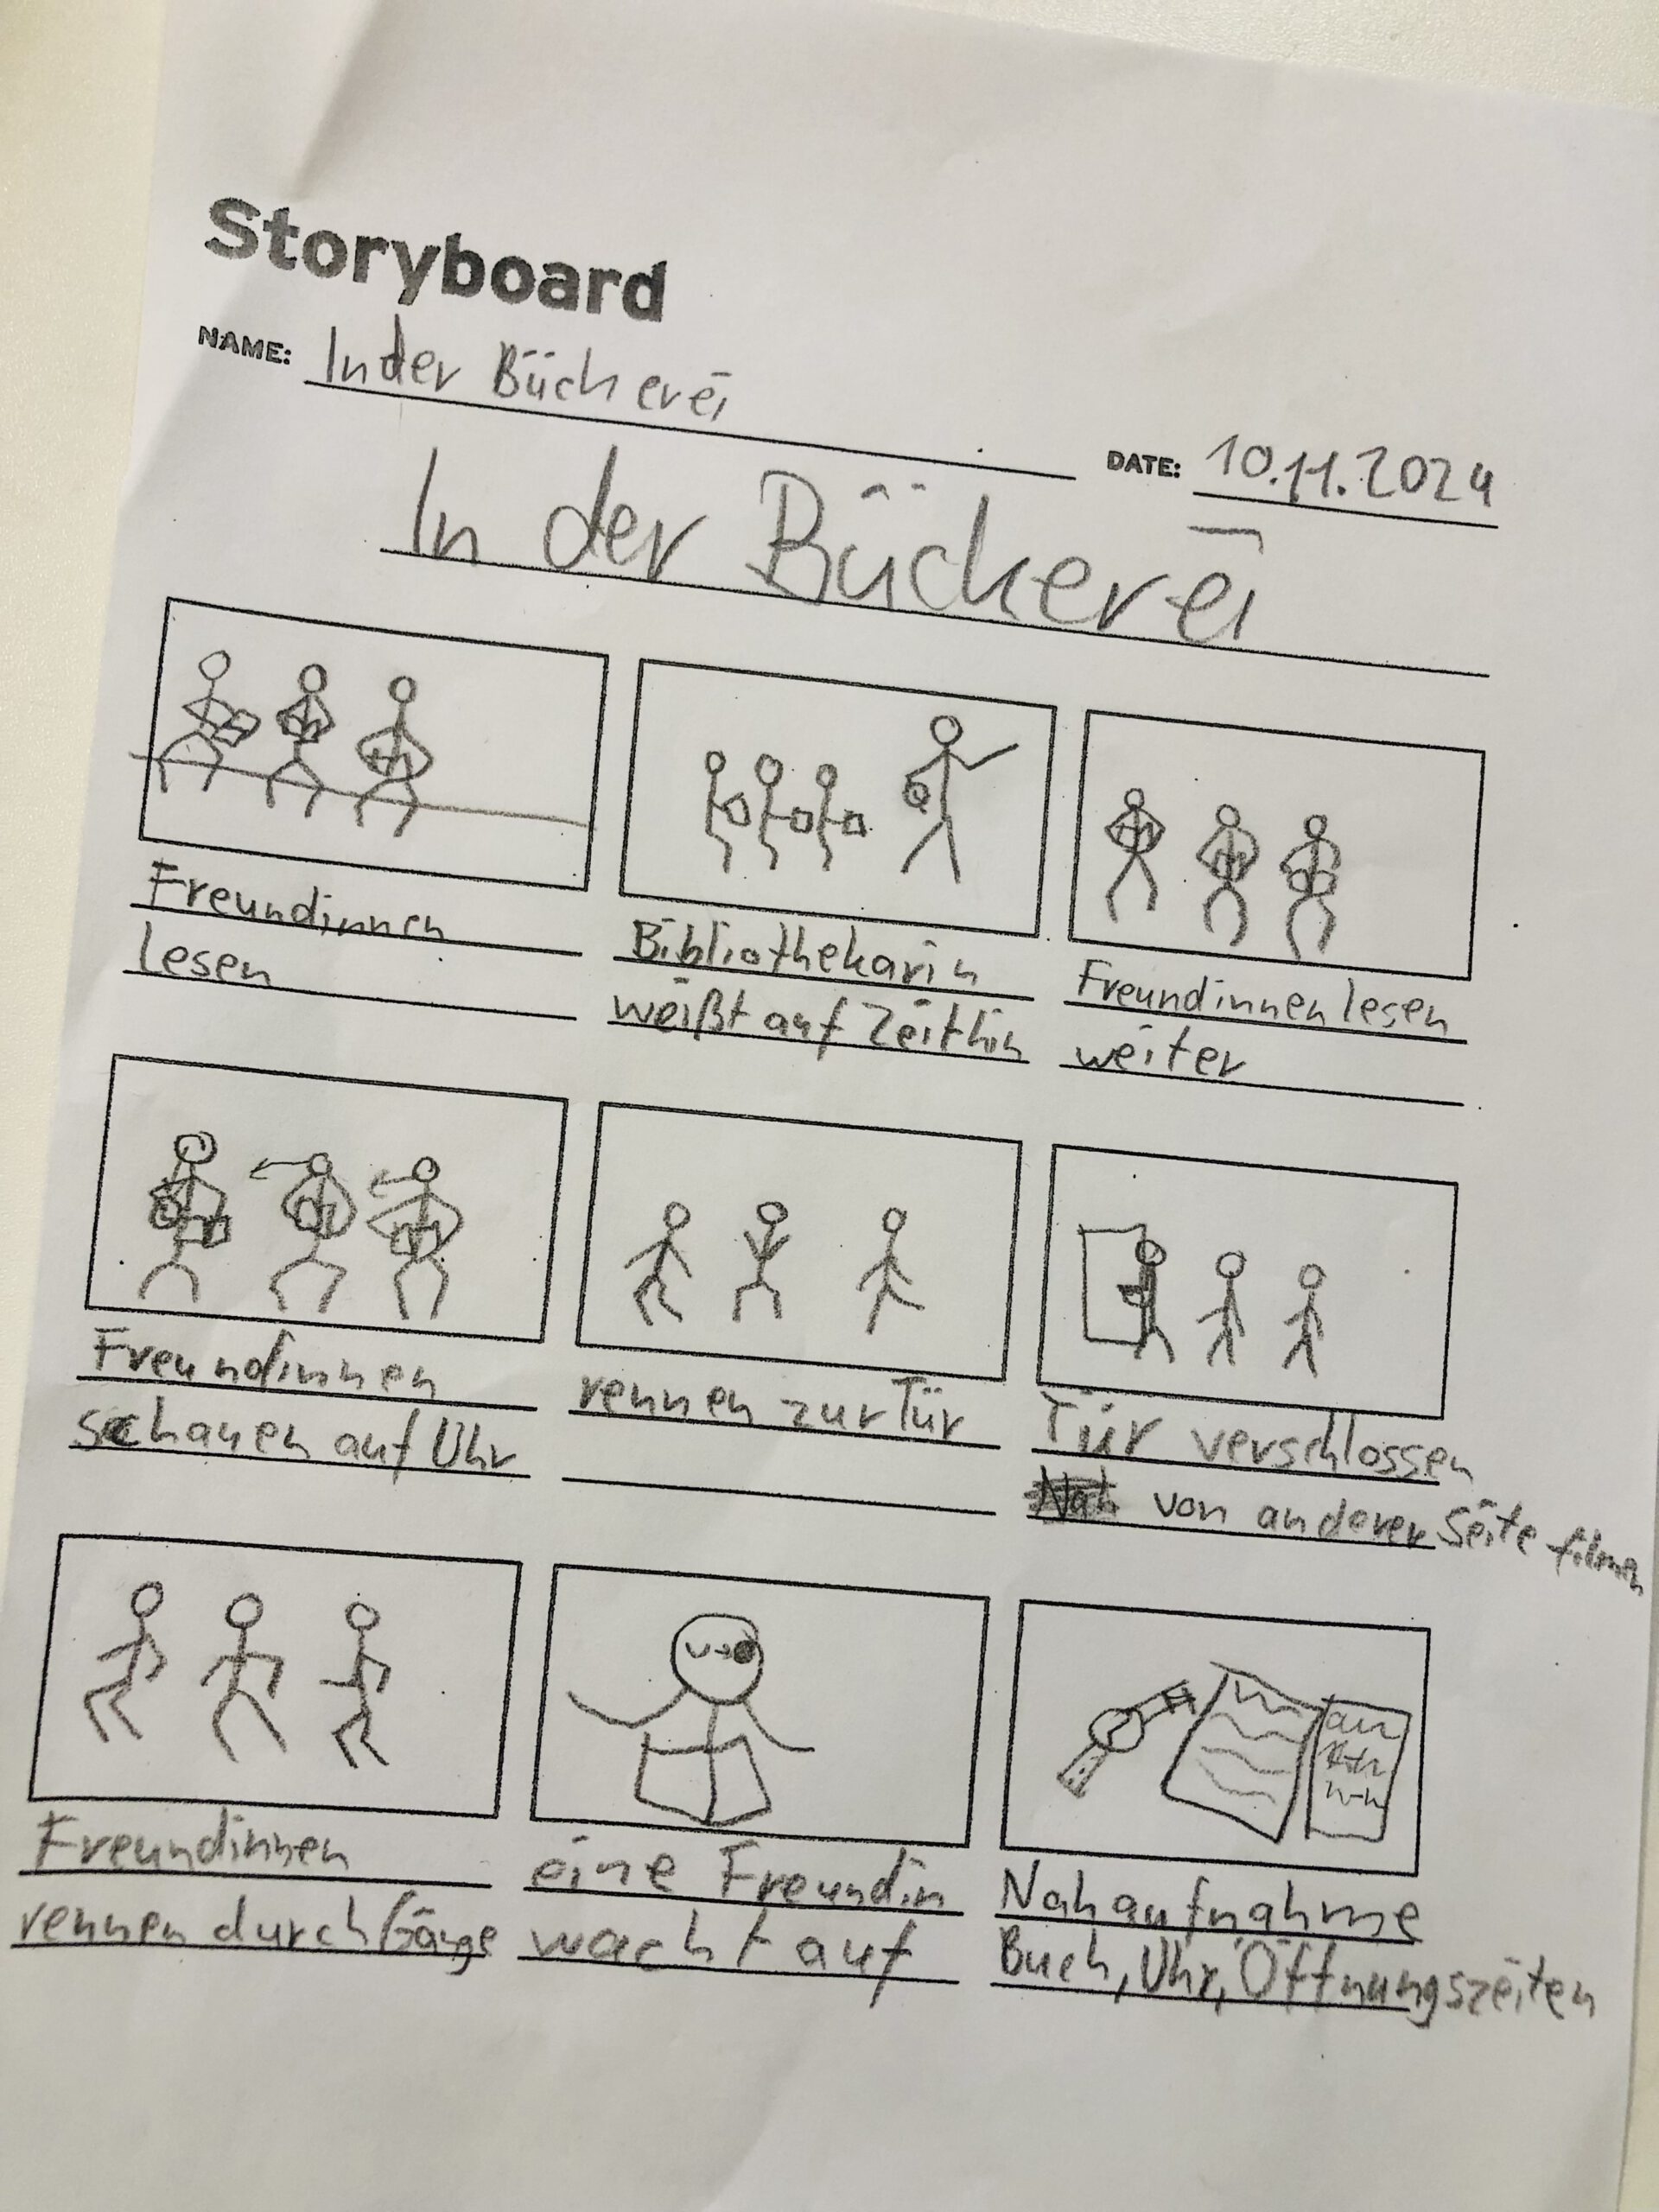 Storyboard
NAME: In der Bücherei
DATE: 10.11.2024
In der Bücherei
Freundinnen
lesen
Bibliothekarin
weißt auf Zeit hin
Freundinnen lesen
weiter
Freundinnen
schauen auf Uhr
rennen zur Tür
Tür verschlossen
von anderer Seite filmen
Freundinnen
rennen durch Gänge
eine Freundin
wacht auf
Nahaufnahme
Buch, Uhr, Öffnungszeiten